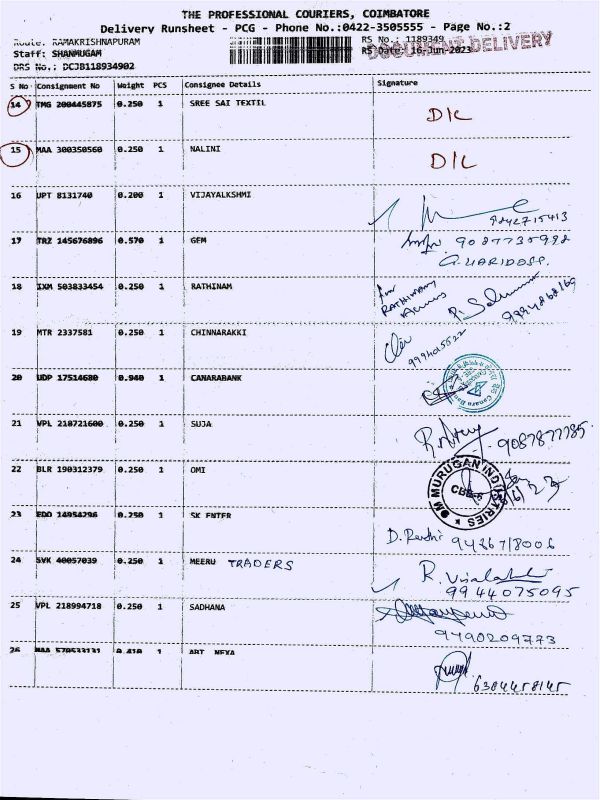 THE PROFESSIONAL COURIERS, COIMBATORE
Delivery Runsheet - PCG - Phone No.:0422-3505555 - Page No.:2
Route: RAMAKRISHNAPURAM RS No.: 1189349
Staff: SHANMUGAM RS Date: 16-Jun-2023
DOCUMENT DELIVERY
DRS No.: DCJB118934902
S No Consignment No Weight PCS Consignee Details Signature
14 TMG 200445875 0.250 1 SREE SAI TEXTIL D/L
15 MAA 300350560 0.250 1 NALINI D/L
16 UPT 8131740 0.200 1 VIJAYALKSHMI
9842715413
17 TRZ 145676896 0.570 1 GEM 9087735998
G. HARIDOSS.
18 IXM 503833454 0.250 1 RATHINAM for RATHINAM
9994868169
19 MTR 2337581 0.250 1 CHINNARAKKI
9994025522
20 UDP 17514680 0.940 1 CANARABANK
21 VPL 218721600 0.250 1 SUJA
9087877785
22 BLR 190312379 0.250 1 OMI
OM MURUGAN INDUSTRIES
CBE-6
23 EDO 14954296 0.250 1 SK ENTER
D. Revthi 9426718006
24 SVK 40057039 0.250 1 MEERU TRADERS R. Visalakshi
9944075095
25 VPL 218994718 0.250 1 SADHANA
9790209773
26 MAA 570533131 0.410 1 ART NEXA
6384458145